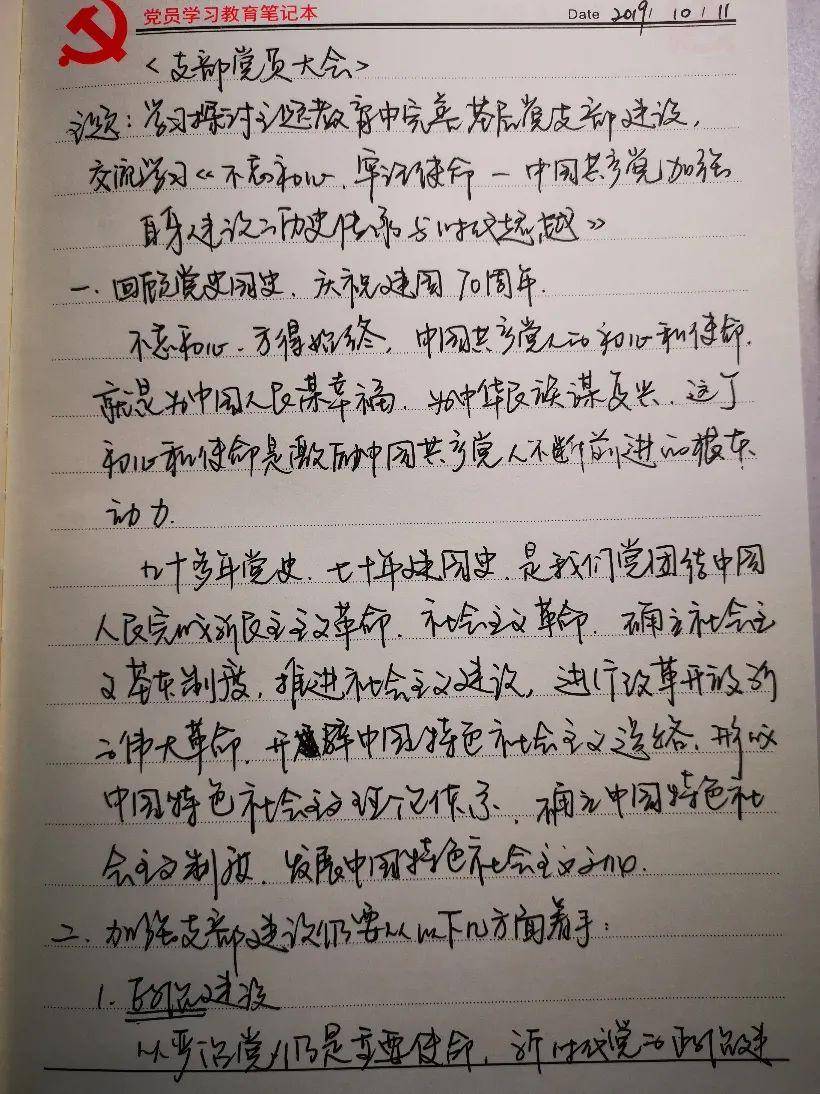 党员学习教育笔记本
Date 2019/ 10 / 11
<支部党员大会>
主题：学习探讨主题教育中完善基层党支部建设，
交流学习《不忘初心、牢记使命－中国共产党加强
自身建设的历史传承与时代超越》
一、回顾党史国史，庆祝建国70周年.
不忘初心、方得始终，中国共产党人的初心和使命，
就是为中国人民谋幸福，为中华民族谋复兴，这个
初心和使命是激励中国共产党人不断前进的根本
动力.
九十多年党史、七十年建国史，是我们党团结中国
人民完成新民主主义革命、社会主义革命、确立社会主
义基本制度，推进社会主义建设，进行改革开放新
的伟大革命，开辟中国特色社会主义道路，形成
中国特色社会主义理论体系，确立中国特色社
会主义制度，发展中国特色社会主义文化.
二、加强支部建设仍要从以下几方面着手：
1. 政治建设
从严治党仍是重要使命，新时代党的政治建